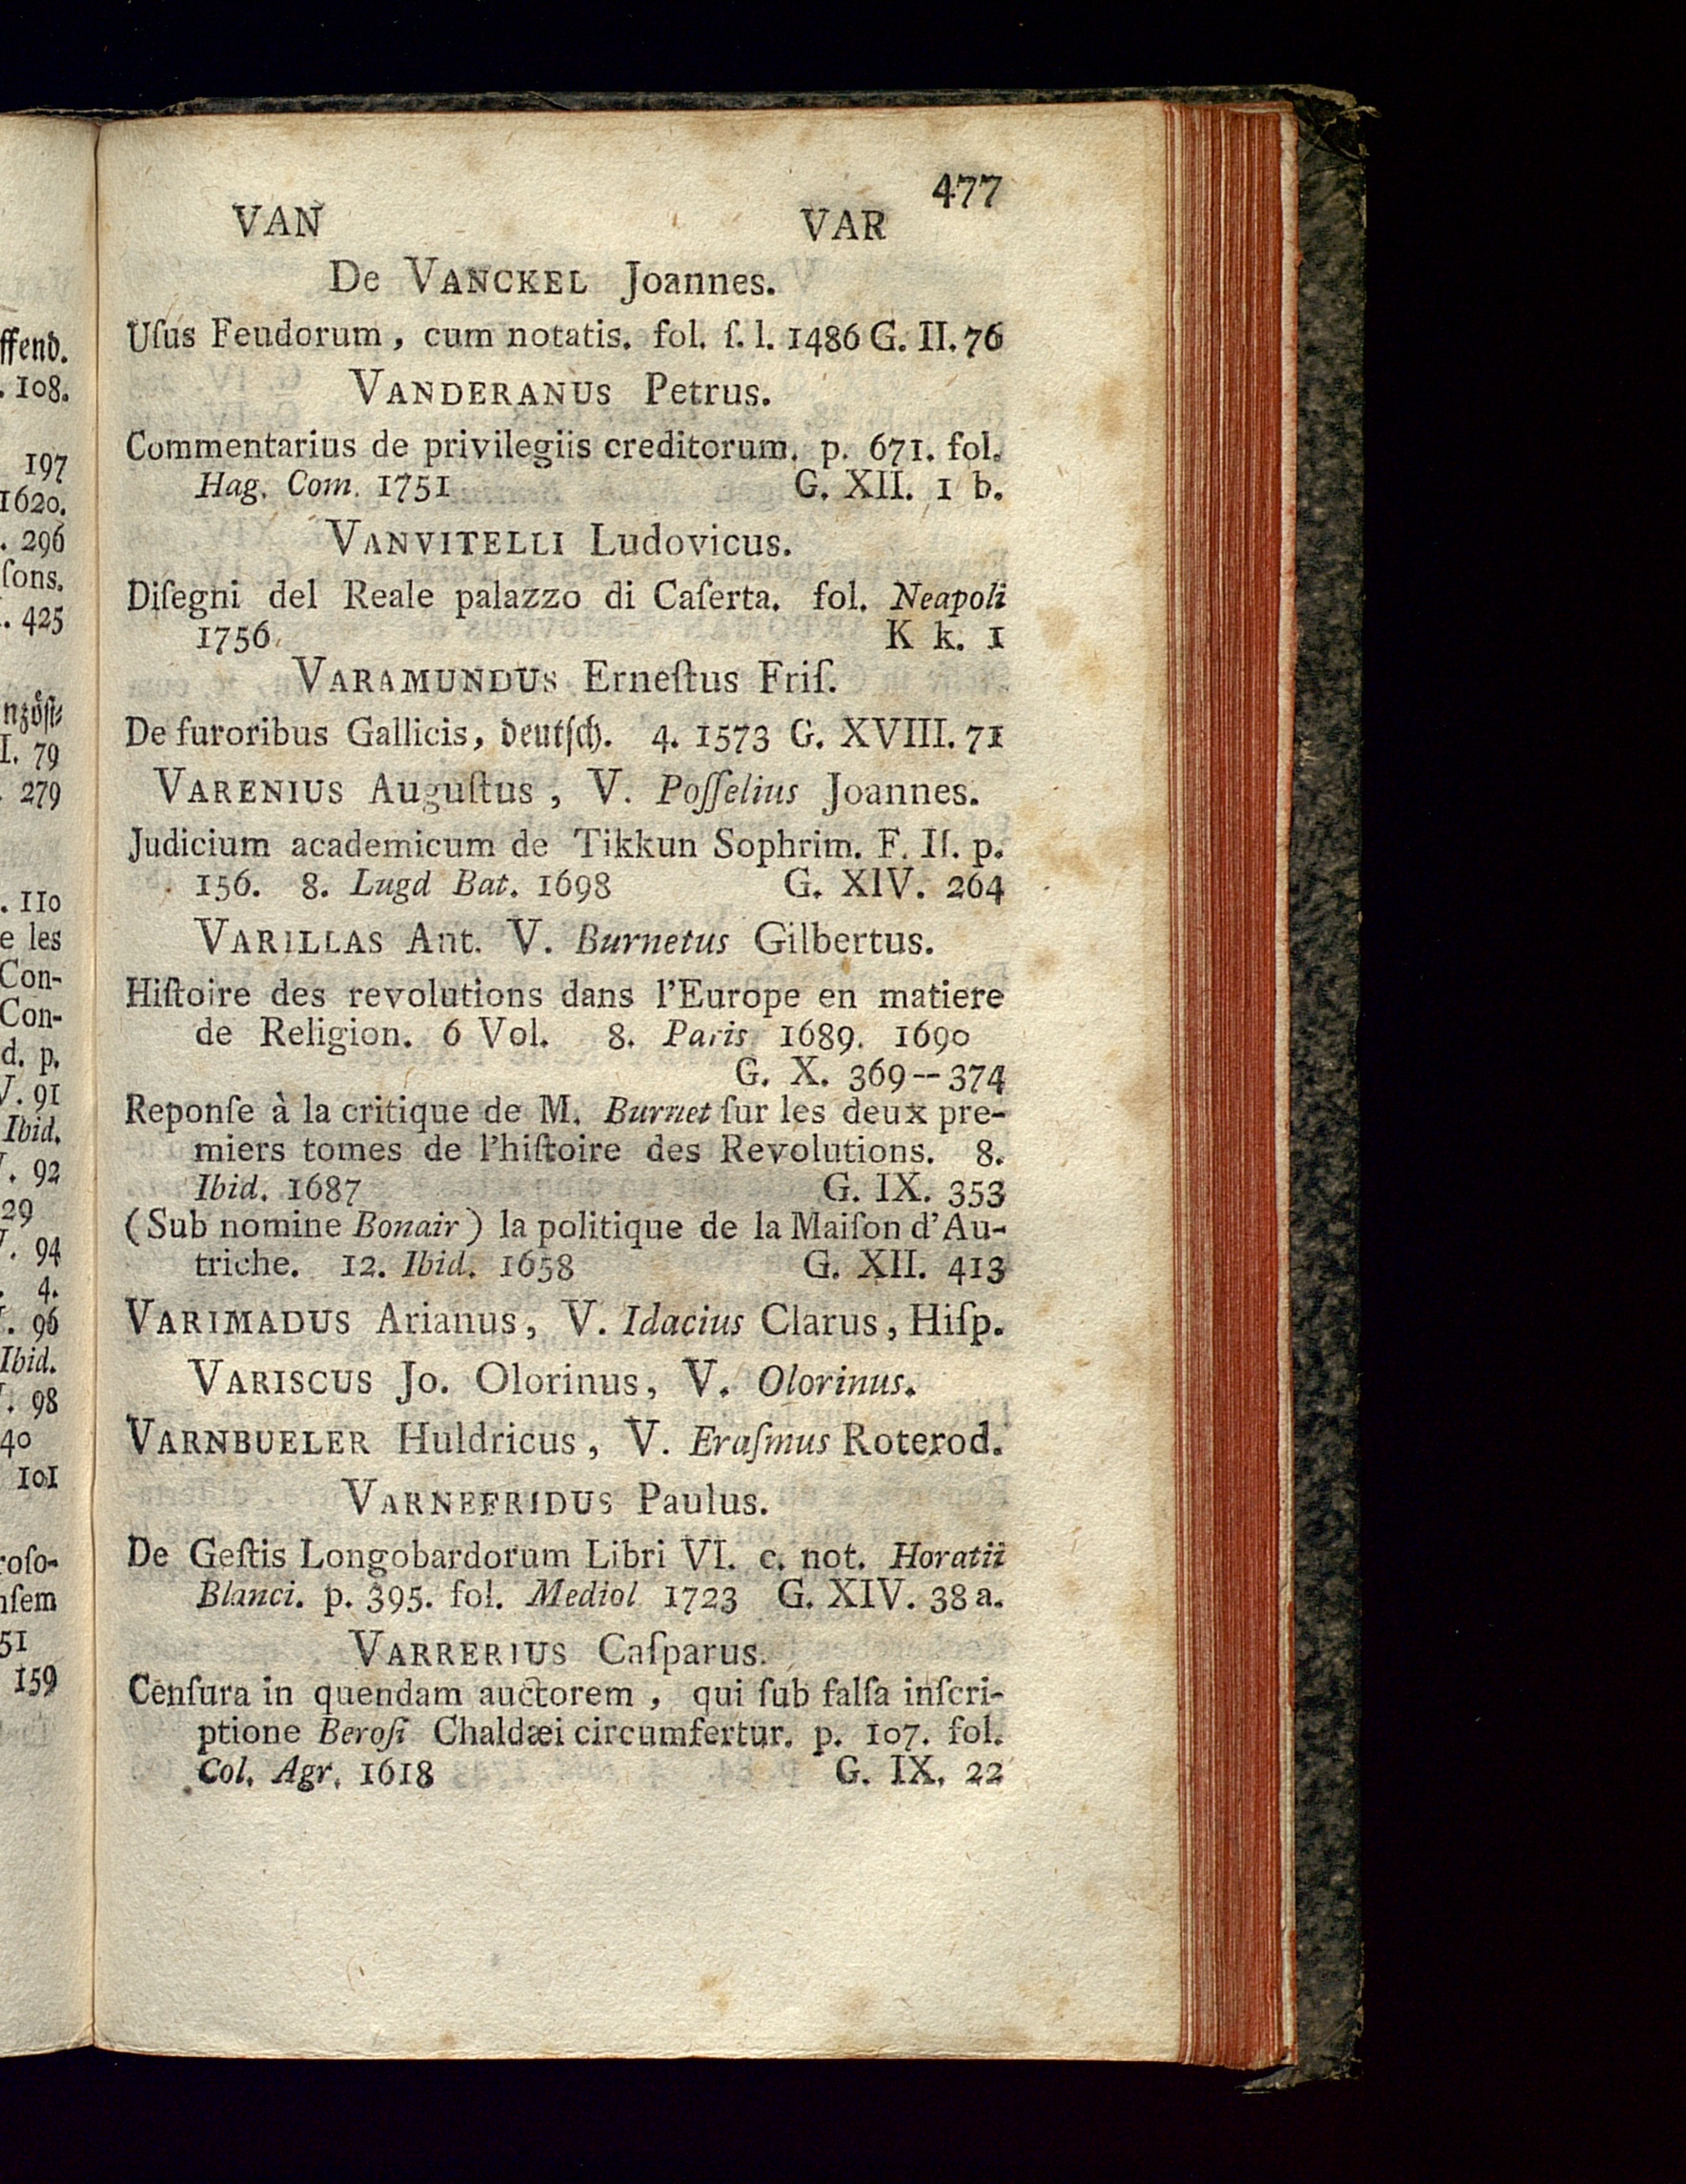 477
VAN VAR
De VANCKEL Joannes.
Uſus Feudorum, cum notatis. fol. ſ. l. 1486 G. II. 76
VANDERANUS Petrus.
Commentarius de privilegiis creditorum. p. 671. fol.
Hag. Com. 1751 G. XII. 1 b.
VANVITELLI Ludovicus.
Diſegni del Reale palazzo di Caſerta. fol. Neapoli
1756. K k. 1
VARAMUNDUS Erneſtus Friſ.
De furoribus Gallicis, Deutſch. 4. 1573 G. XVIII. 71
VARENIUS Auguſtus, V. Poſſelius Joannes.
Judicium academicum de Tikkun Sophrim. F. II. p.
156. 8. Lugd Bat. 1698 G. XIV. 264
VARILLAS Ant. V. Burnetus Gilbertus.
Hiſtoire des revolutions dans l'Europe en matiere
de Religion. 6 Vol. 8. Paris 1689. 1690
G. X. 369--374
Reponſe à la critique de M. Burnet ſur les deux pre-
miers tomes de l'hiſtoire des Revolutions. 8.
Ibid. 1687 G. IX. 353
(Sub nomine Bonair) la politique de la Maiſon d'Au-
triche. 12. Ibid. 1658 G. XII. 413
VARIMADUS Arianus, V. Idacius Clarus, Hiſp.
VARISCUS Jo. Olorinus, V. Olorinus.
VARNBUELER Huldricus, V. Eraſmus Roterod.
VARNEFRIDUS Paulus.
De Geſtis Longobardorum Libri VI. c. not. Horatii
Blanci. p. 395. fol. Mediol 1723 G. XIV. 38 a.
VARRERIUS Caſparus.
Cenſura in quendam auctorem, qui ſub falſa inſcri-
ptione Beroſi Chaldæi circumfertur. p. 107. fol.
Col. Agr. 1618 G. IX. 22
ffend.
. 108.
197
1620.
. 296
ſons.
. 425
I. 79
279
. 110
e les
Con-
Con-
d. p.
V. 91
Ibid.
. 92
29
. 94
4.
. 96
Ibid.
. 98
40
101
roſo-
nſem
51
159